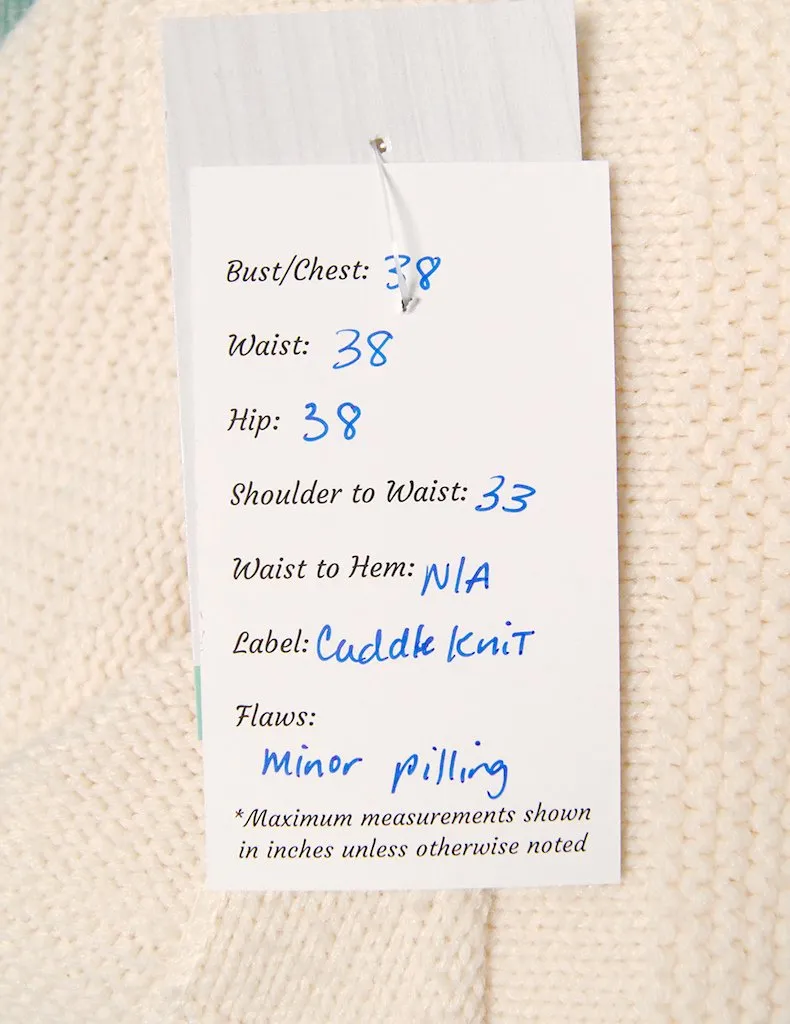 Bust/Chest: 38
Waist: 38
Hip: 38
Shoulder to Waist: 33
Waist to Hem: N/A
Label: Cuddle Knit
Flaws:
minor pilling
*Maximum measurements shown
in inches unless otherwise noted